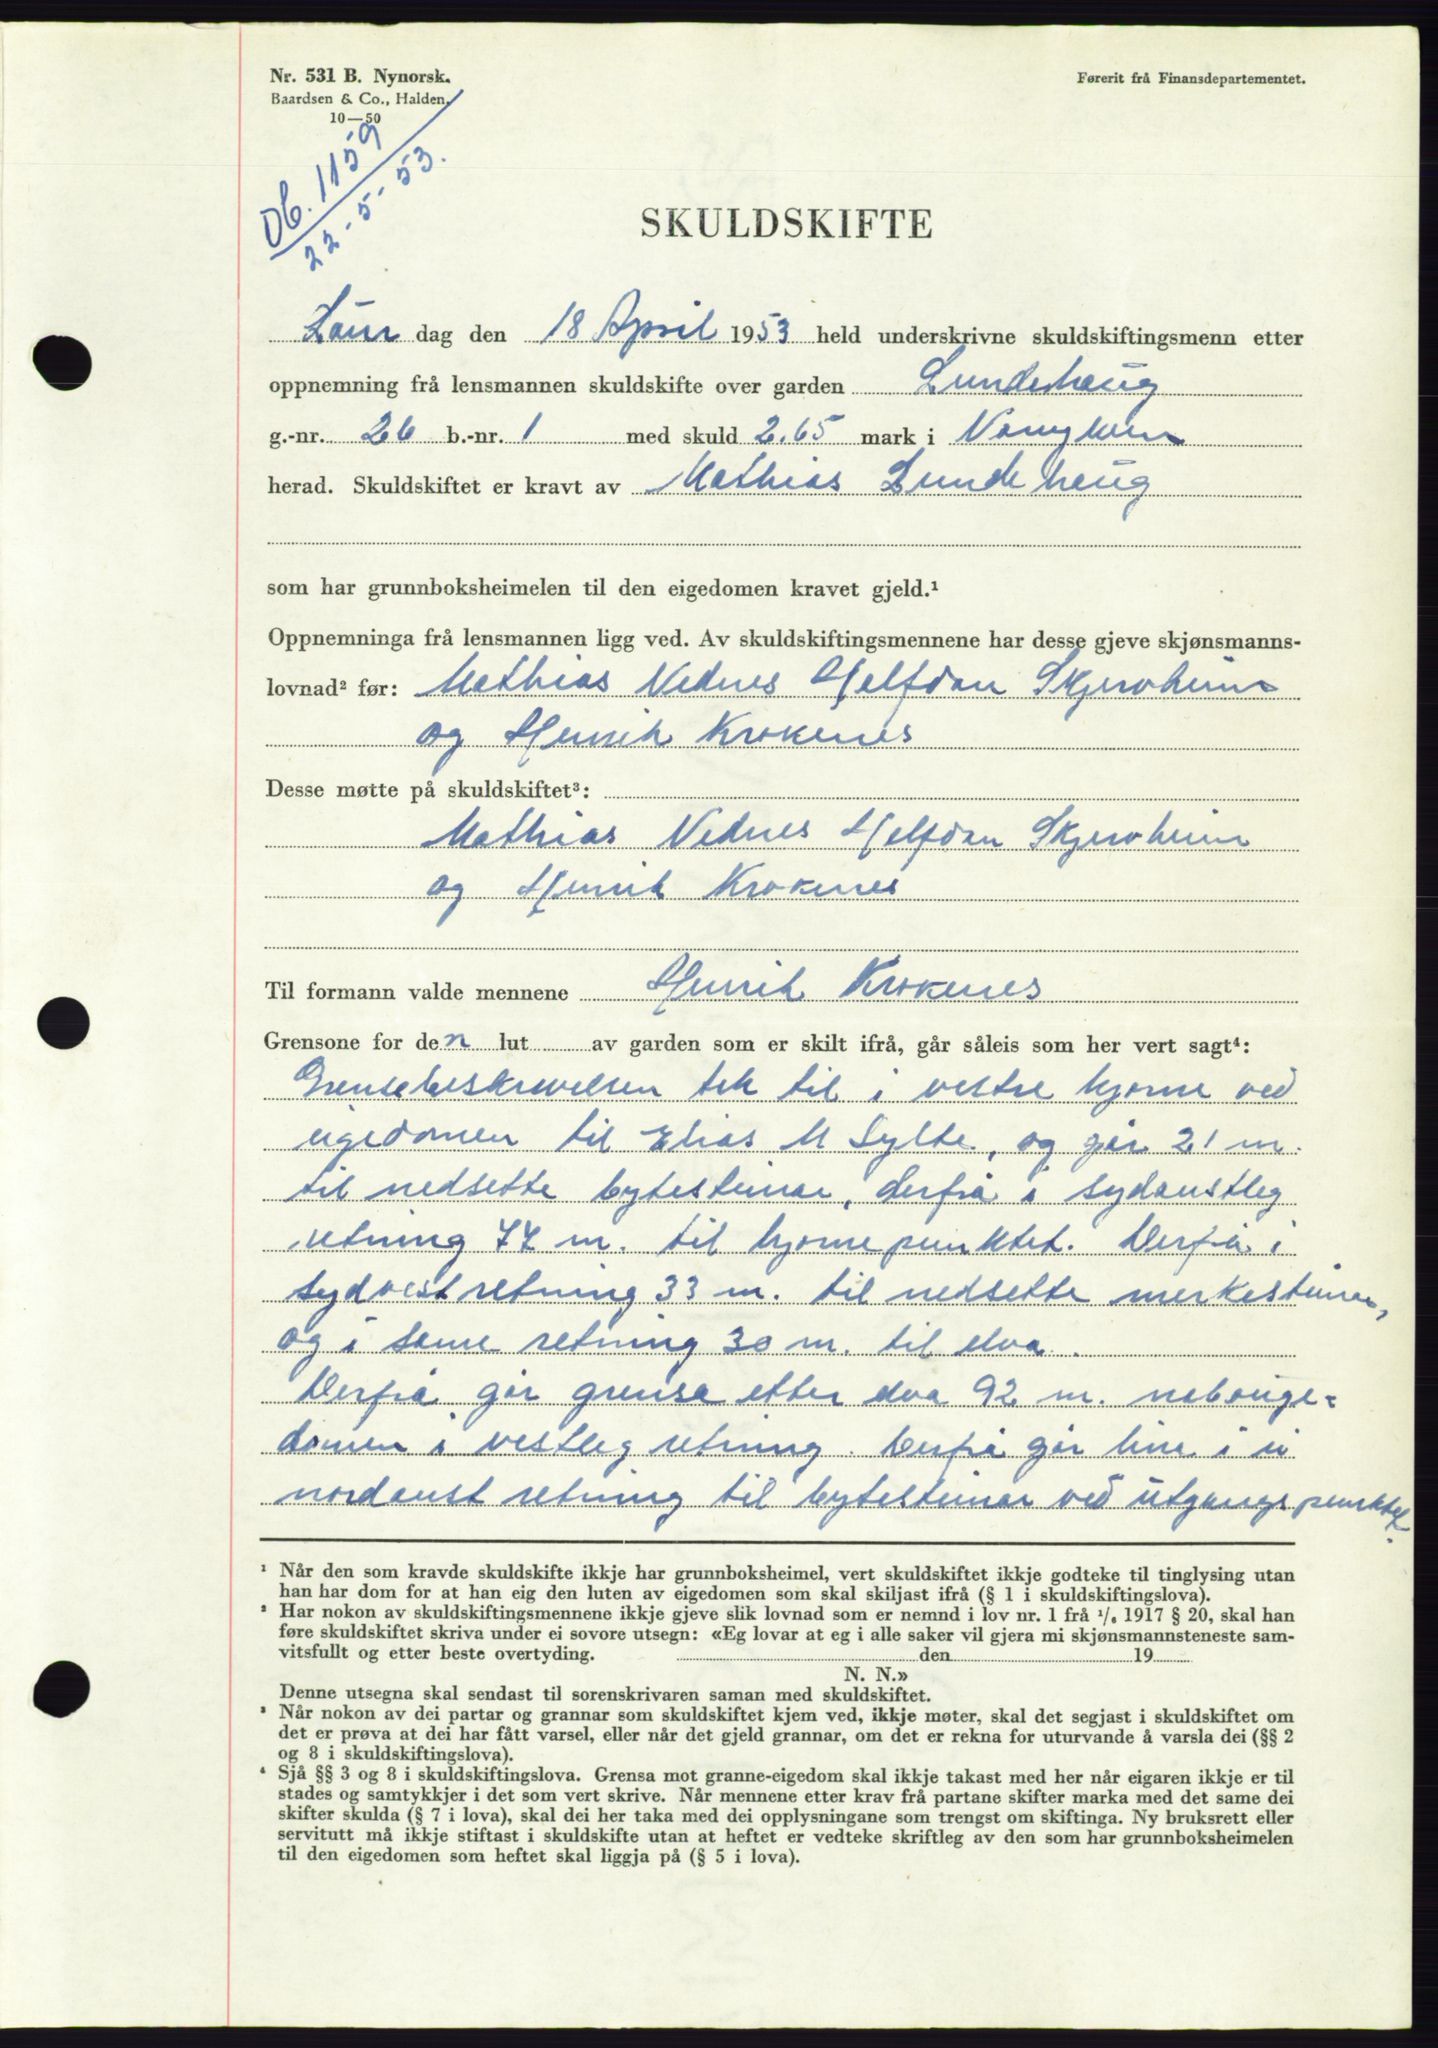 Nr. 531 B. Nynorsk.
Baardsen & Co., Halden.
10—50
Førerit frå Finansdepartementet.
Db. 1159
22-5-53.
SKULDSKIFTE
Laur dag den 18 April 1953 held underskrivne skuldskiftingsmenn etter
oppnemning frå lensmannen skuldskifte over garden Lundehaug
g.-nr. 26 b.-nr. 1 med skuld 2.65 mark i
herad. Skuldskiftet er kravt av Mathias Lundehaug
som har grunnboksheimelen til den eigedomen kravet gjeld.¹
Oppnemninga frå lensmannen ligg ved. Av skuldskiftingsmennene har desse gjeve skjønsmanns-
lovnad² før: Mathias Nednes Halfdan Skjervheim
og Henrik Krokenes
Desse møtte på skuldskiftet³:
Mathias Nednes Halfdan Skjervheim
og Henrik Krokenes
Til formann valde mennene Henrik Krokenes
Grensone for den lut av garden som er skilt ifrå, går såleis som her vert sagt⁴:
Grensebeskrivelsen tek til i vestre hjørne ved
eigedomen til Elias M Sylte, og går 21 m.
til nedsette bytesteinar, derfrå i sydaustleg
retning 77 m. til hjørnepunktet. Derfrå i
sydvest retning 33 m. til nedsette merkesteinar,
og i same retning 30 m. til elva.
Derfrå går grensa etter elva 92 m. naboeige-
domen i vestleg retning. Derfrå går line i ei
nordaust retning til bytesteinar ved utgangspunktet.
¹ Når den som kravde skuldskifte ikkje har grunnboksheimel, vert skuldskiftet ikkje godteke til tinglysing utan
han har dom for at han eig den luten av eigedomen som skal skiljast ifrå (§ 1 i skuldskiftingslova).
² Har nokon av skuldskiftingsmennene ikkje gjeve slik lovnad som er nemnd i lov nr. 1 frå ¹/₆ 1917 § 20, skal han
føre skuldskiftet skriva under ei sovore utsegn: «Eg lovar at eg i alle saker vil gjera mi skjønsmannsteneste sam-
vitsfullt og etter beste overtyding. den 19
N. N.»
Denne utsegna skal sendast til sorenskrivaren saman med skuldskiftet.
³ Når nokon av dei partar og grannar som skuldskiftet kjem ved, ikkje møter, skal det segjast i skuldskiftet om
det er prøva at dei har fått varsel, eller når det gjeld grannar, om det er rekna for uturvande å varsla dei (§§ 2
og 8 i skuldskiftingslova).
⁴ Sjå §§ 3 og 8 i skuldskiftingslova. Grensa mot granne-eigedom skal ikkje takast med her når eigaren ikkje er til
stades og samtykkjer i det som vert skrive. Når mennene etter krav frå partane skifter marka med det same dei
skifter skulda (§ 7 i lova), skal dei her taka med dei opplysningane som trengst om skiftinga. Ny bruksrett eller
servitutt må ikkje stiftast i skuldskifte utan at heftet er vedteke skriftleg av den som har grunnboksheimelen
til den eigedomen som heftet skal liggja på (§ 5 i lova).